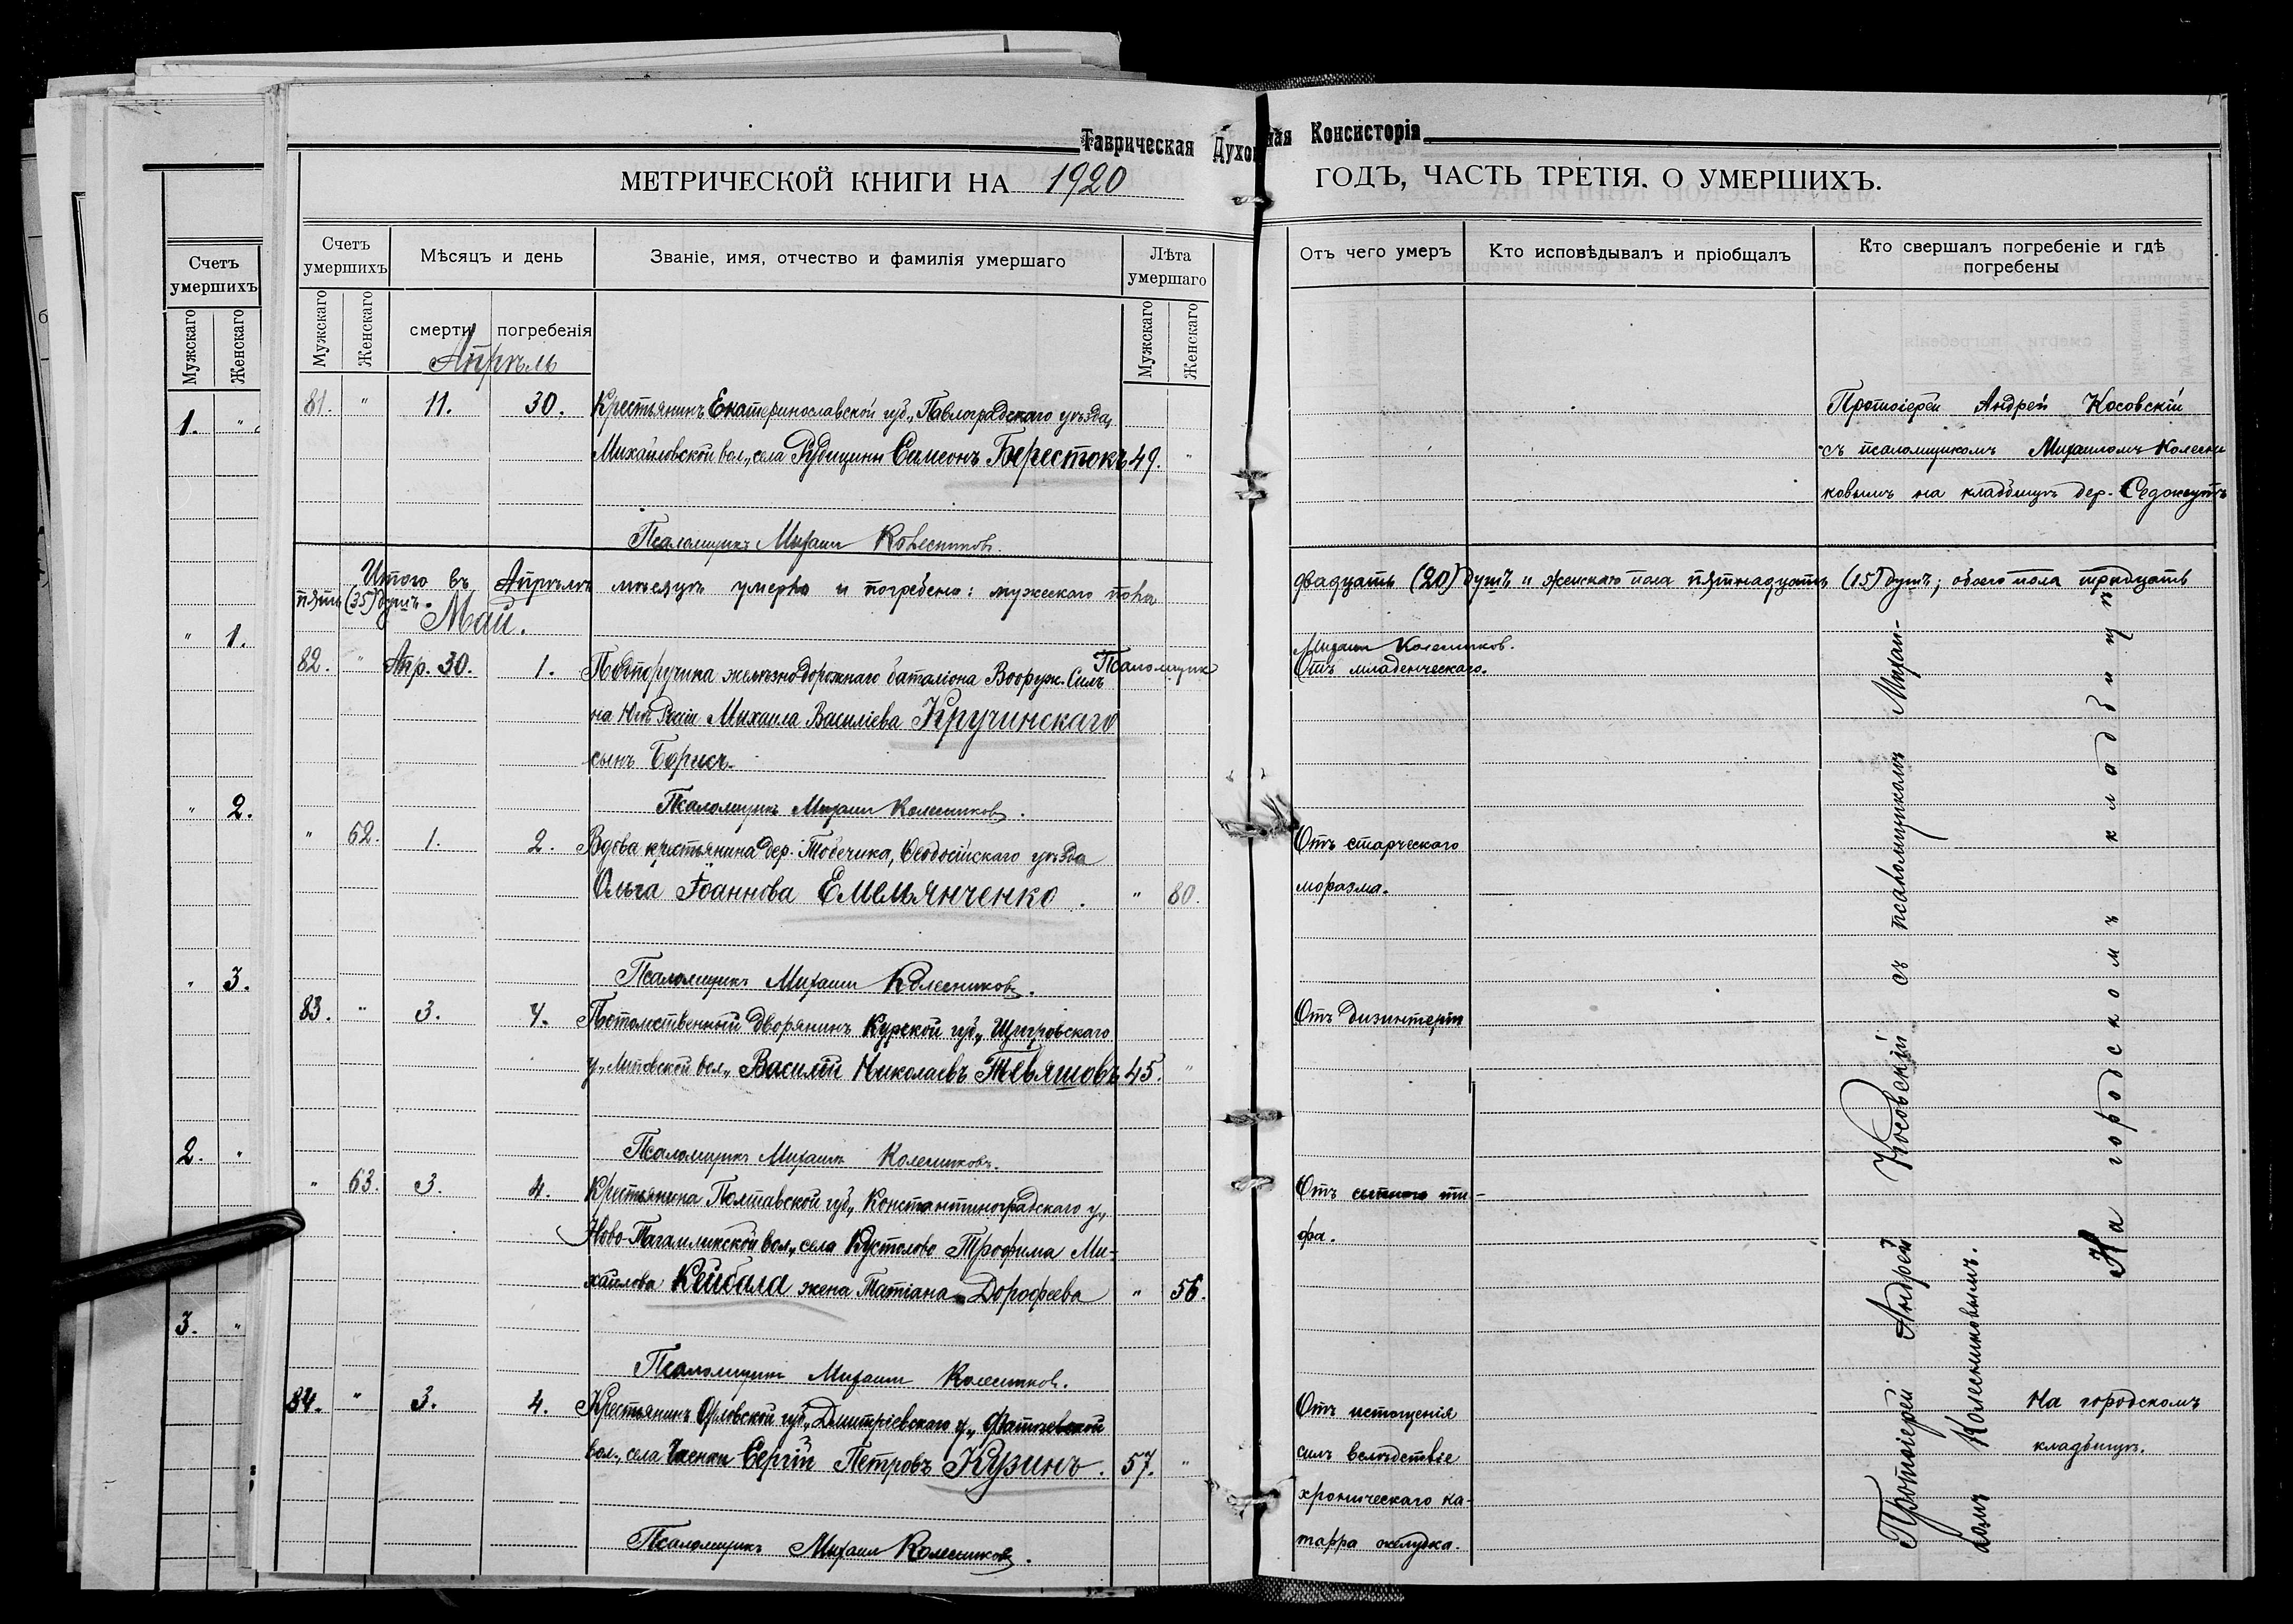 Таврическая Духовная Консисторія
МЕТРИЧЕСКОЙ КНИГИ НА 1920 ГОДЪ, ЧАСТЬ ТРЕТІЯ. О УМЕРШИХЪ.
Счетъ умершихъ
Мужскаго
Женскаго
1. "
" 1.
" 2.
" 3.
2. "
3. "
Счетъ умершихъ
Мужскаго
Женскаго
Мѣсяцъ и день
смерти
погребенія
Званіе, имя, отчество и фамилія умершаго
Лѣта умершаго
Мужскаго
Женскаго
Отъ чего умеръ
Кто исповѣдывалъ и пріобщалъ
Кто свершалъ погребеніе и гдѣ
погребены
Апрѣль
81. " 11. 30. Крестьянинъ Екатеринославской губ., Павлоградскаго уѣзда,
Михайловской вол., села Рудицины Симеонъ Берестокъ 49. "
Протоіерей Андрей Косовскій
съ псаломщикомъ Михаиломъ Колесни
ковымъ на кладбищѣ дер.
Псаломщикъ Михаилъ Колесниковъ.
Итого въ Апрѣлѣ мѣсяцѣ умерло и погребено: мужескаго пола двадцать (20) душъ и женскаго пола пятнадцать (15) душъ; обоего пола тридцать
пять (35) душъ.
Май.
Псаломщикъ Михаилъ Колесниковъ.
82. " Апр. 30. 1. Подпоручика желѣзнодорожнаго баталіона Вооруж. Силъ
на Югѣ Россіи Михаила Василіева Кручинскаго
сынъ Борисъ.
Отъ младенческаго.
Псаломщикъ Михаилъ Колесниковъ.
" 62. 1. 2. Вдова крестьянина дер. Тобечика, Ѳеодосійскаго уѣзда
Ольга Іоаннова Емельянченко. " 80.
Отъ старческаго
моразма.
Псаломщикъ Михаилъ Колесниковъ.
83. " 3. 4. Потомственный дворянинъ Курской губ., Щигровскаго
у., Липовской вол., Василій Николаевъ Тевяшовъ 45. "
Отъ дизинтеріи
Псаломщикъ Михаилъ Колесниковъ.
" 63. 3. 4. Крестьянина Полтавской губ., Константиноградскаго у.,
Ново-Тагамликской вол., села Кустолово Трофима Ми-
хайлова Кейбала жена Татіана Дорофеева " 56.
Отъ сыпного ти-
фа.
Псаломщикъ Михаилъ Колесниковъ.
84. " 3. 4. Крестьянинъ Орловской губ., Дмитріевскаго у., Фатневской
вол., села Сергій Петровъ Кузинъ. 57. "
Отъ истощенія
силъ вслѣдствіе
хроническаго ка-
тарра желудка.
Псаломщикъ Михаилъ Колесниковъ.
Протоіерей Андрей Косовскій съ псаломщикомъ Михаи-
ломъ Колесниковымъ.
На городскомъ кладбищѣ
На городскомъ
кладбищѣ.